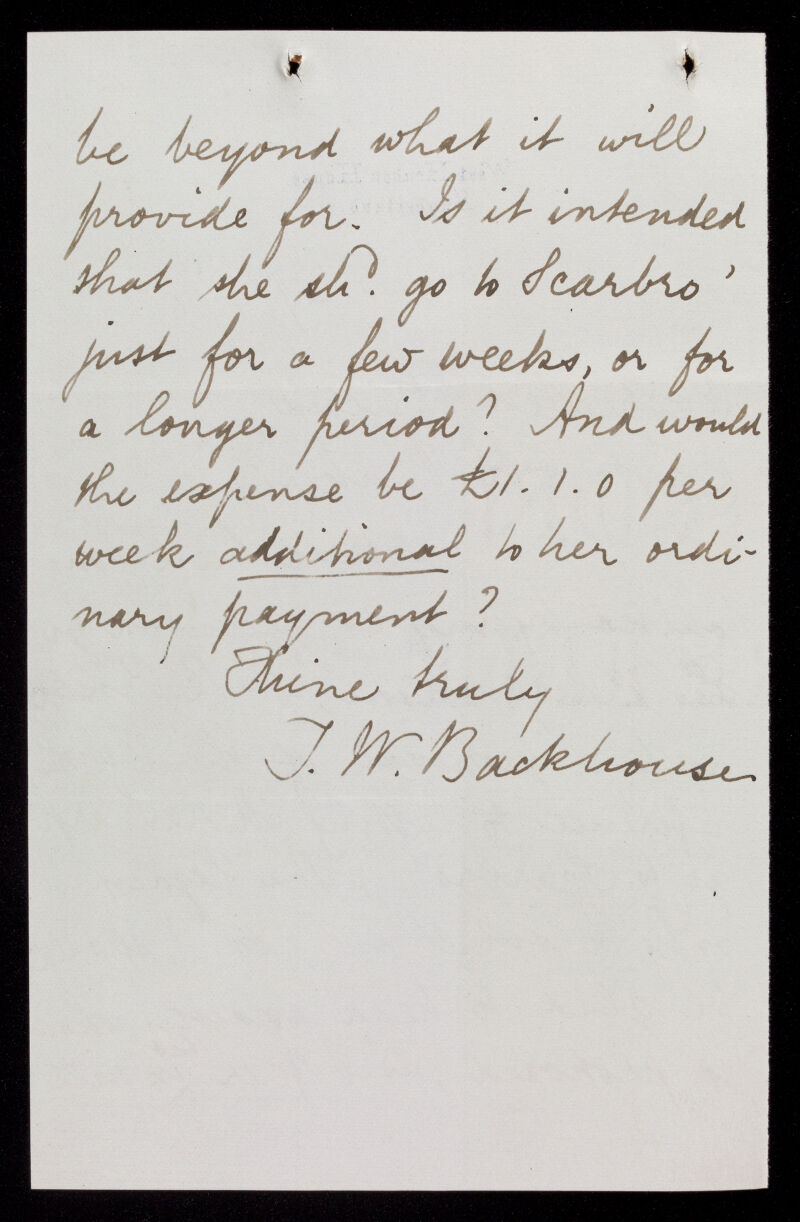 be beyond what it will
provide for. Is it intended
that she shd. go to Scarbro'
just for a few weeks, or for
a longer period? And would
the expense be £1. 1. 0 per
week additional to her ordi-
nary payment?
Thine truly
T. W. Backhouse